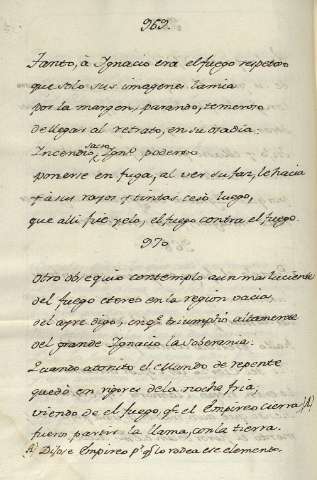 969.
Tanto, à Ignacio era el fuego respetoso
que solo sus imagenes lamia
por la margen, parando, temeroso
de llegar al retrato, en su osadia:
Incendio sacro, Ign.º poderoso
ponerse en fuga, al ver su faz, le hacia
y a sus rayos y tintas cesò luego,
que alli fuè yelo, el fuego contra el fuego.
970
Otro obsequio contemplo aun mas luciente
del fuego etereo en la region vacia,
del ayre digo, en q.e triumphò altamente
del grande Ignacio la soberania:
Quando atonito el Mundo de repente
quedò en rigores de la noche fria,
viendo de el fuego, q.e el Empireo cierra (A)
fuero partir la llama, con la tierra.
(A) Dijose Empireo p.r q.e lo rodea ese elemento.